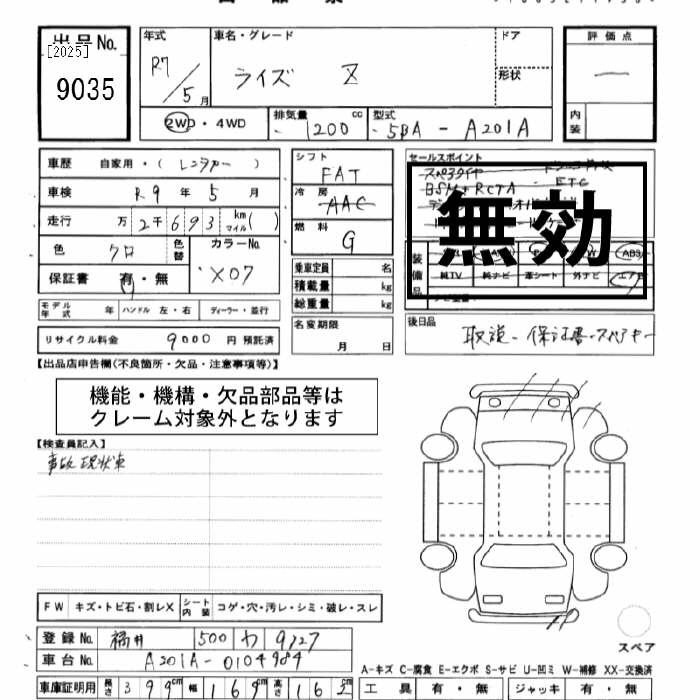 出品No. [2025] 9035
年式 R7/5月 車名・グレード ライズ Z ドア 形状
評価点 一 内装
2WD・4WD 排気量 1200 cc 型式 5BA - A201A
車歴 自家用・(レンタカー)
車検 R9年5月
走行 万2千693 km マイル( )
色 クロ 色替 カラーNo. X07
保証書 有・無
モデル年式 年 ハンドル 左・右 ディーラー・並行
リサイクル料金 9000円 預託済
シフト FAT
冷房 AAC
燃料 G
乗車定員 名
積載量 kg
総重量 kg
名変期限 月 日
セールスポイント
スペアタイヤ
BSM+RCTA ETC
無効
装備品 AB3
純TV 純ナビ 革シート 外ナビ エアB
後日品 取説-保証書・スペアキー
【出品店申告欄(不良箇所・欠品・注意事項等)】
機能・機構・欠品部品等は
クレーム対象外となります
【検査員記入】
事故現状車
FW キズ・トビ石・割レX シート内装 コゲ・穴・汚レ・シミ・破レ・スレ
登録No. 福井 500 わ 9727
車台No. A201A-0104984
車庫証明用 長さ 399cm 幅 169cm 高さ 162
スペア
A-キズ C-腐食 E-エクボ S-サビ U-凹ミ W-補修 XX-交換済
工具 有・無 ジャッキ 有・無